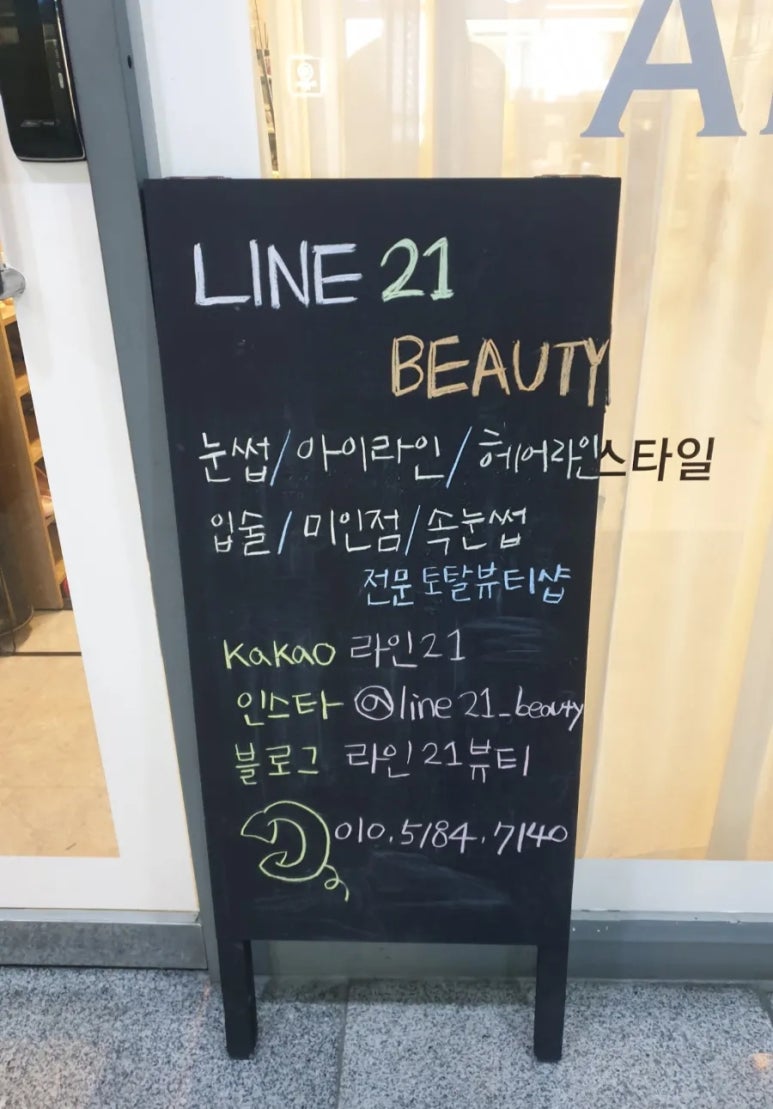 LINE 21
BEAUTY
눈썹/아이라인/헤어라인
스타일
입술/미인점/속눈썹
전문 토탈뷰티샵
KaKaO 라인21
인스타 @line21_beauty
블로그 라인21뷰티
010.5184.7140